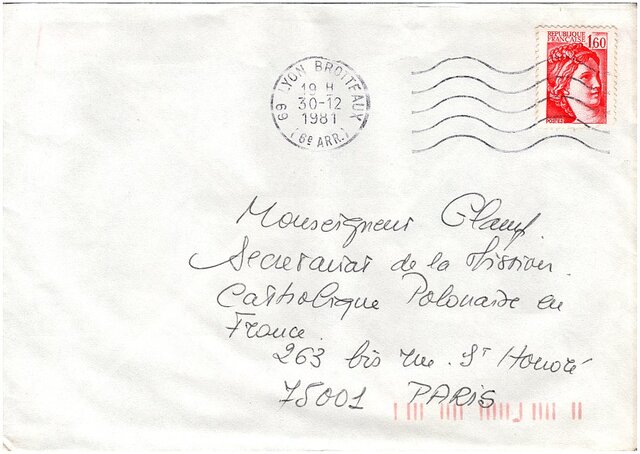 REPUBLIQUE
FRANÇAISE 1,60
69 LYON BROTTEAUX
19 H
30-12
1981
(6e ARR.)
Monseigneur
Secretariat de la Mission
Catholique Polonaise en
France
263 bis rue St Honoré
75001 PARIS